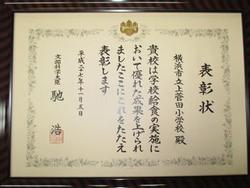 表彰状
横浜市立上菅田小学校 殿
貴校は学校給食の実施に
おいて優れた成果を上げられ
ましたここにこれをたたえ
表彰します
平成二十七年十一月五日
文部科学大臣 馳 浩